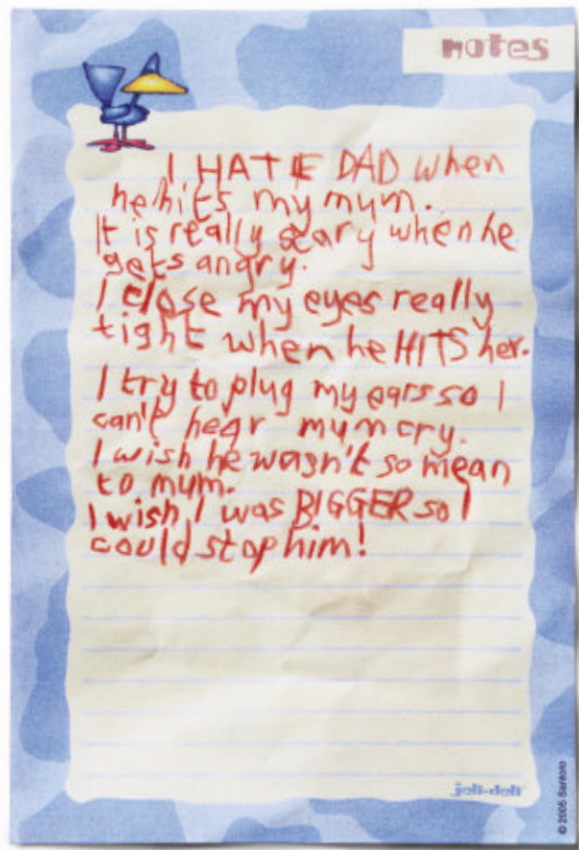 notes
I HATE DAD when
he hits my mum.
It is really scary when he
gets angry.
I close my eyes really
tight when he HITS her.
I try to plug my ears so I
can't hear mum cry.
I wish he wasn't so mean
to mum.
I wish I was BIGGER so I
could stop him!
jeli-deli
© 2005 Santoro